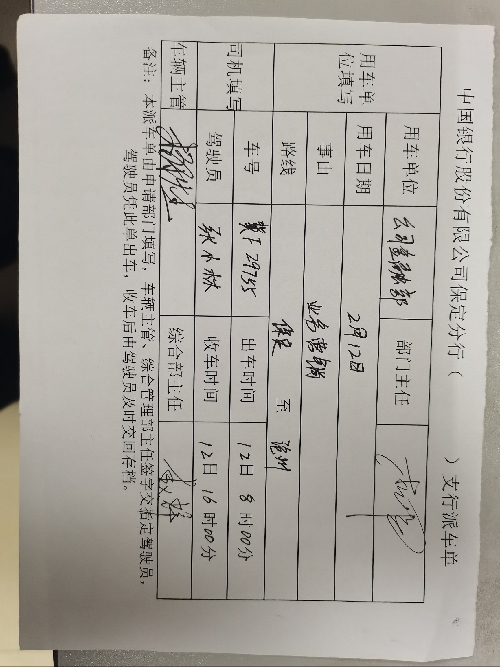 中国银行股份有限公司保定分行（ ）支行派车单
用车单位填写
用车单位 公司金融部 部门主任
用车日期 2月12日
事由 业务营销
路线 保定 至 涿州
司机填写
车号 冀F29755 出车时间 12日8时00分
驾驶员 张小林 收车时间 12日16时00分
车辆主管 综合部主任
备注：本派车单由申请部门填写，车辆主管、综合管理部主任签字交指定驾驶员，
驾驶员凭此单出车，收车后由驾驶员及时交回存档。